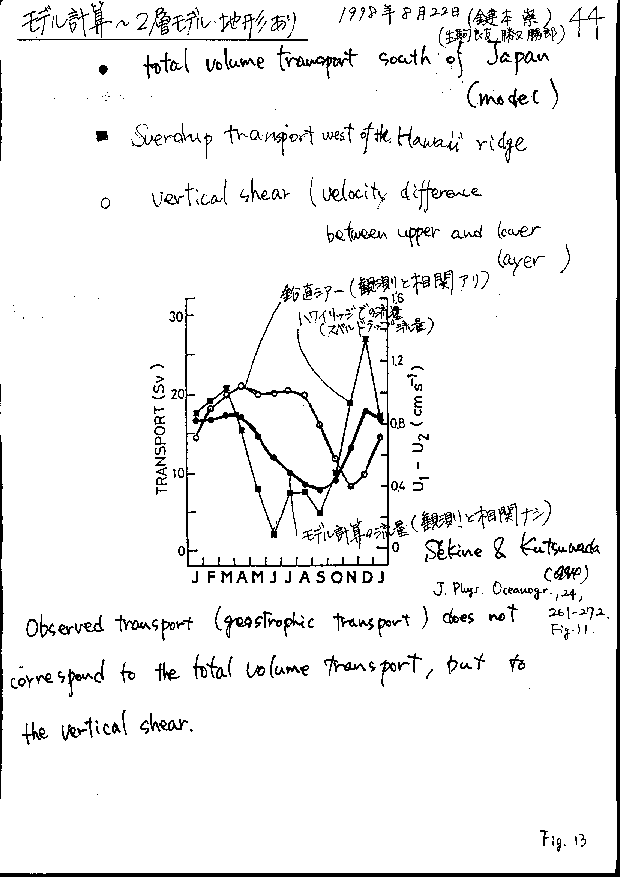 モデル計算～2層モデル・地形あり
1998年8月22日 (鍵本 崇) 44
● total volume transport south of Japan
(model)
■ Sverdrup transport west of the Hawaii ridge
○ vertical shear (velocity difference
between upper and lower
layer)
鉛直シアー(観測と相関アリ)
ハワイリッジでの流量
(スベルドラップ流量)
TRANSPORT (Sv)
30
20
10
0
1.6
1.2
0.8
0.4
0
U1 - U2 (cm s-1)
モデル計算の流量(観測と相関ナシ)
J F M A M J J A S O N D J
Sekine & Kutsuwada
(1994)
J. Phys. Oceanogr., 24,
261-272.
Fig. 11.
Observed transport (geostrophic transport) does not
correspond to the total volume transport, but to
the vertical shear.
Fig. 13